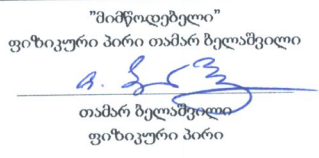 "მიმწოდებელი"
ფიზიკური პირი თამარ ბელაშვილი
თამარ ბელაშვილი
ფიზიკური პირი